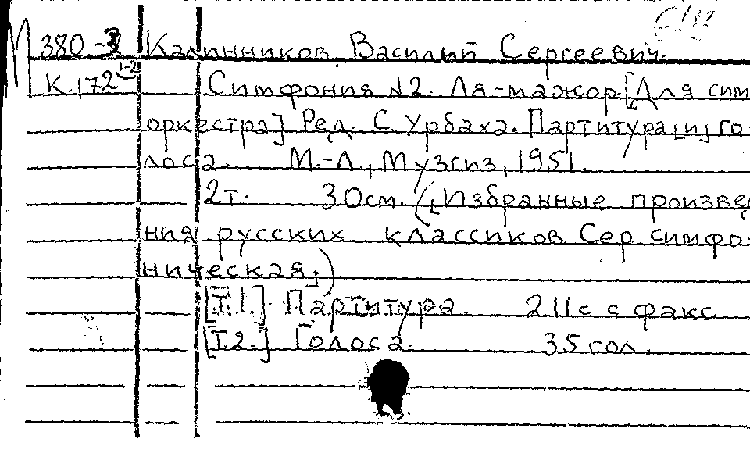 М 380-3 Калинников, Василий Сергеевич.
К 172 1-2 Симфония №2. Ля-мажор [Для сим
оркестра] Ред. С. Урбаха. Партитура [и] го
лоса. М.-Л., Музгиз, 1951.
2т. 30см. ([Избранные произве
ния русских классиков. Сер. симфо
ническая.)
[Т.1.] Партитура. 211с. с факс
[Т.2.] Голоса. 35 гол.